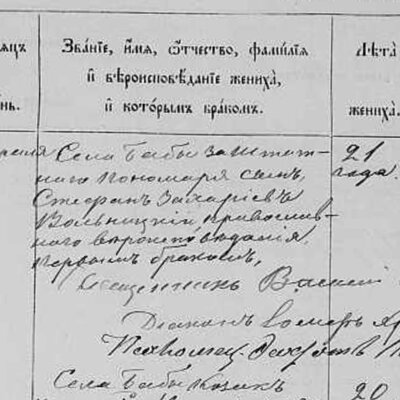 яцъ
Званїе, имя, отчество, фамилїя
и вѣроисповѣданїе жениха,
и которымъ бракомъ.
Лѣта
нь.
жениха.
Села Бабы заштат-
21
наго пономаря сынъ,
года.
Стефанъ Захаріевъ
Вольницкій, православ-
наго вѣроисповѣданія
первымъ бракомъ,
Священникъ Васил
Діаконъ
Села Бабы козакъ
20